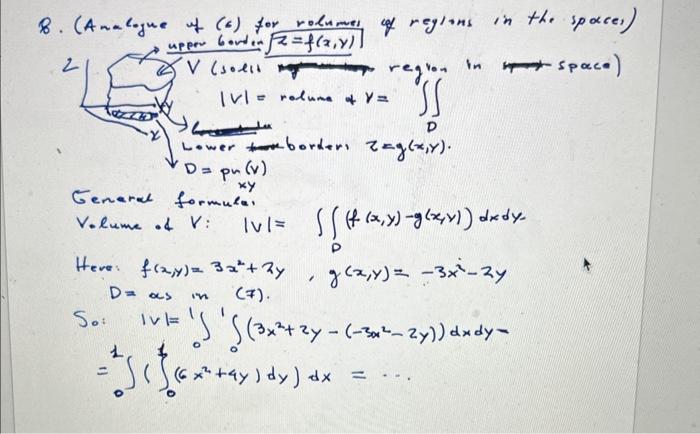 8. (Analogue of (6) for volumes of regions in the space,)
upper border z=f(x,y)
Z
V (solid region in space)
|V| = volume of V = ∫∫
D
x
Lower border: z=g(x,y).
D = pr (V)
xy
General formula:
Volume of V: |V| = ∫∫ (f(x,y)-g(x,y)) dxdy.
D
Here: f(x,y)= 3x²+2y , g(x,y)= -3x²-2y
D= as in (7).
So: |V|= ¹∫₀ ¹∫₀ (3x²+2y-(-3x²-2y)) dxdy =
= ¹∫₀ ( ¹∫₀ (6x²+4y) dy) dx = ...